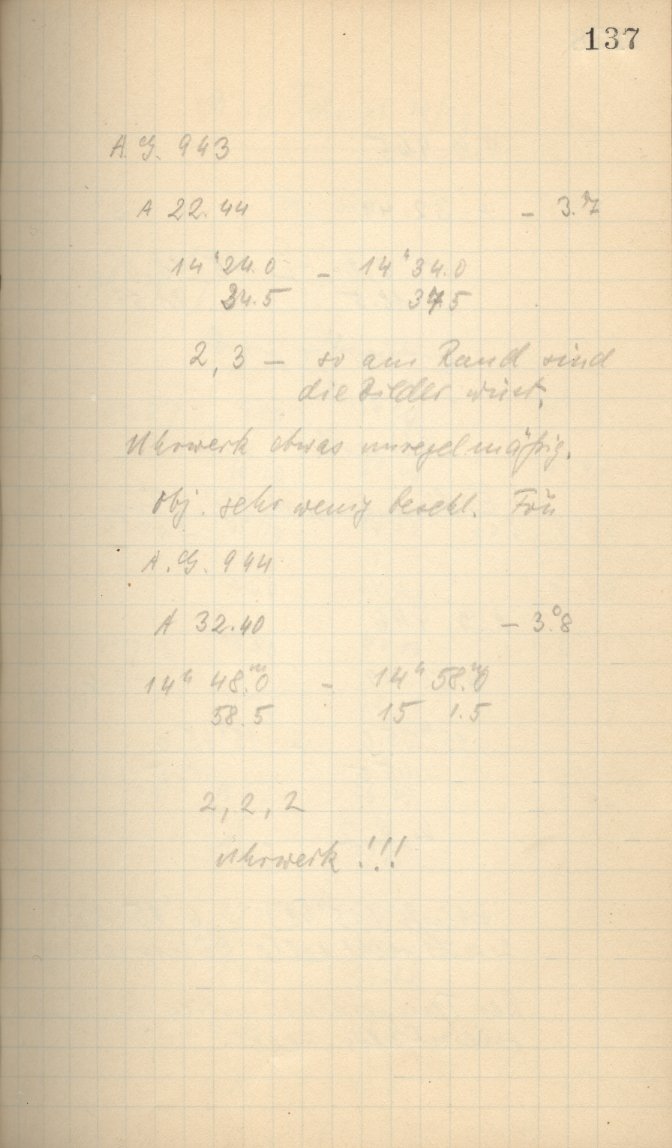 137
A.G. 943
A 22.44 - 3.°7
14ʰ 24.0 - 14ʰ 34.0
34.5 37.5
2, 3 - so am Rand sind
die Bilder wüst.
Uhrwerk etwas unregelmäßig.
Obj. sehr wenig beschl. Fön
A.G. 944
A 32.40 - 3.°8
14ʰ 48.ᵐ0 - 14ʰ 58.ᵐ0
58.5 15 1.5
2, 2, 2
Uhrwerk !!!